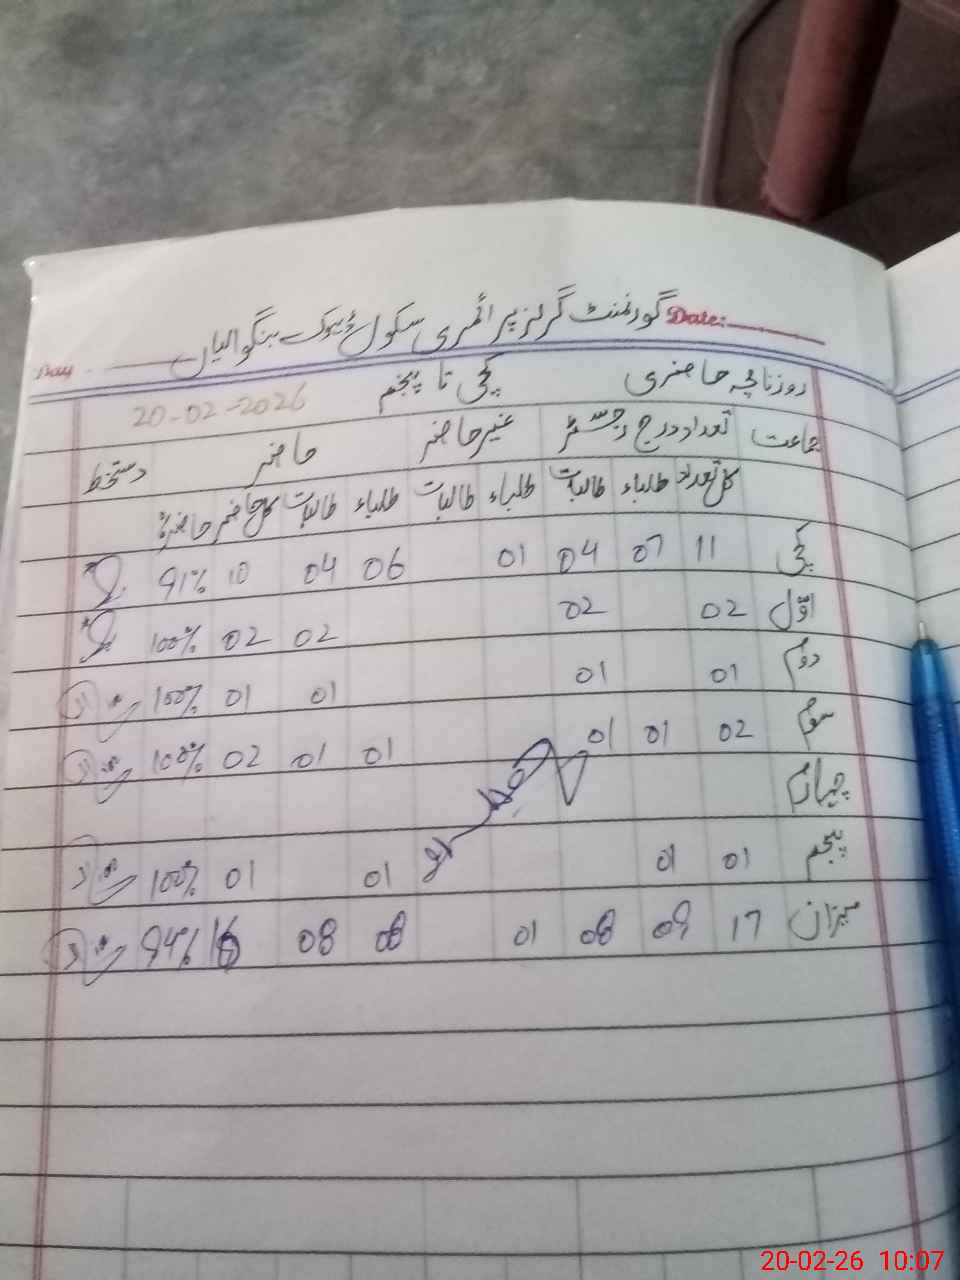 گورنمنٹ گرلز پرائمری سکول ڈہوک بنگوالیاں
Date:
Day
روزنامچہ حاضری کچی تا پنجم 20-02-2026
جماعت تعداد درج رجسٹر غیر حاضر حاضر دستخط
کل تعداد طلباء طالبات طلباء طالبات طلباء طالبات کل حاضر حاضری%
کچی 11 07 04 01 06 04 10 91%
اوّل 02 02 02 02 100%
دوم 01 01 01 01 100%
سوم 02 01 01 01 01 02 100%
چہارم
پنجم 01 01 01 01 100%
میزان 17 09 08 01 08 08 16 94%
20-02-26 10:07